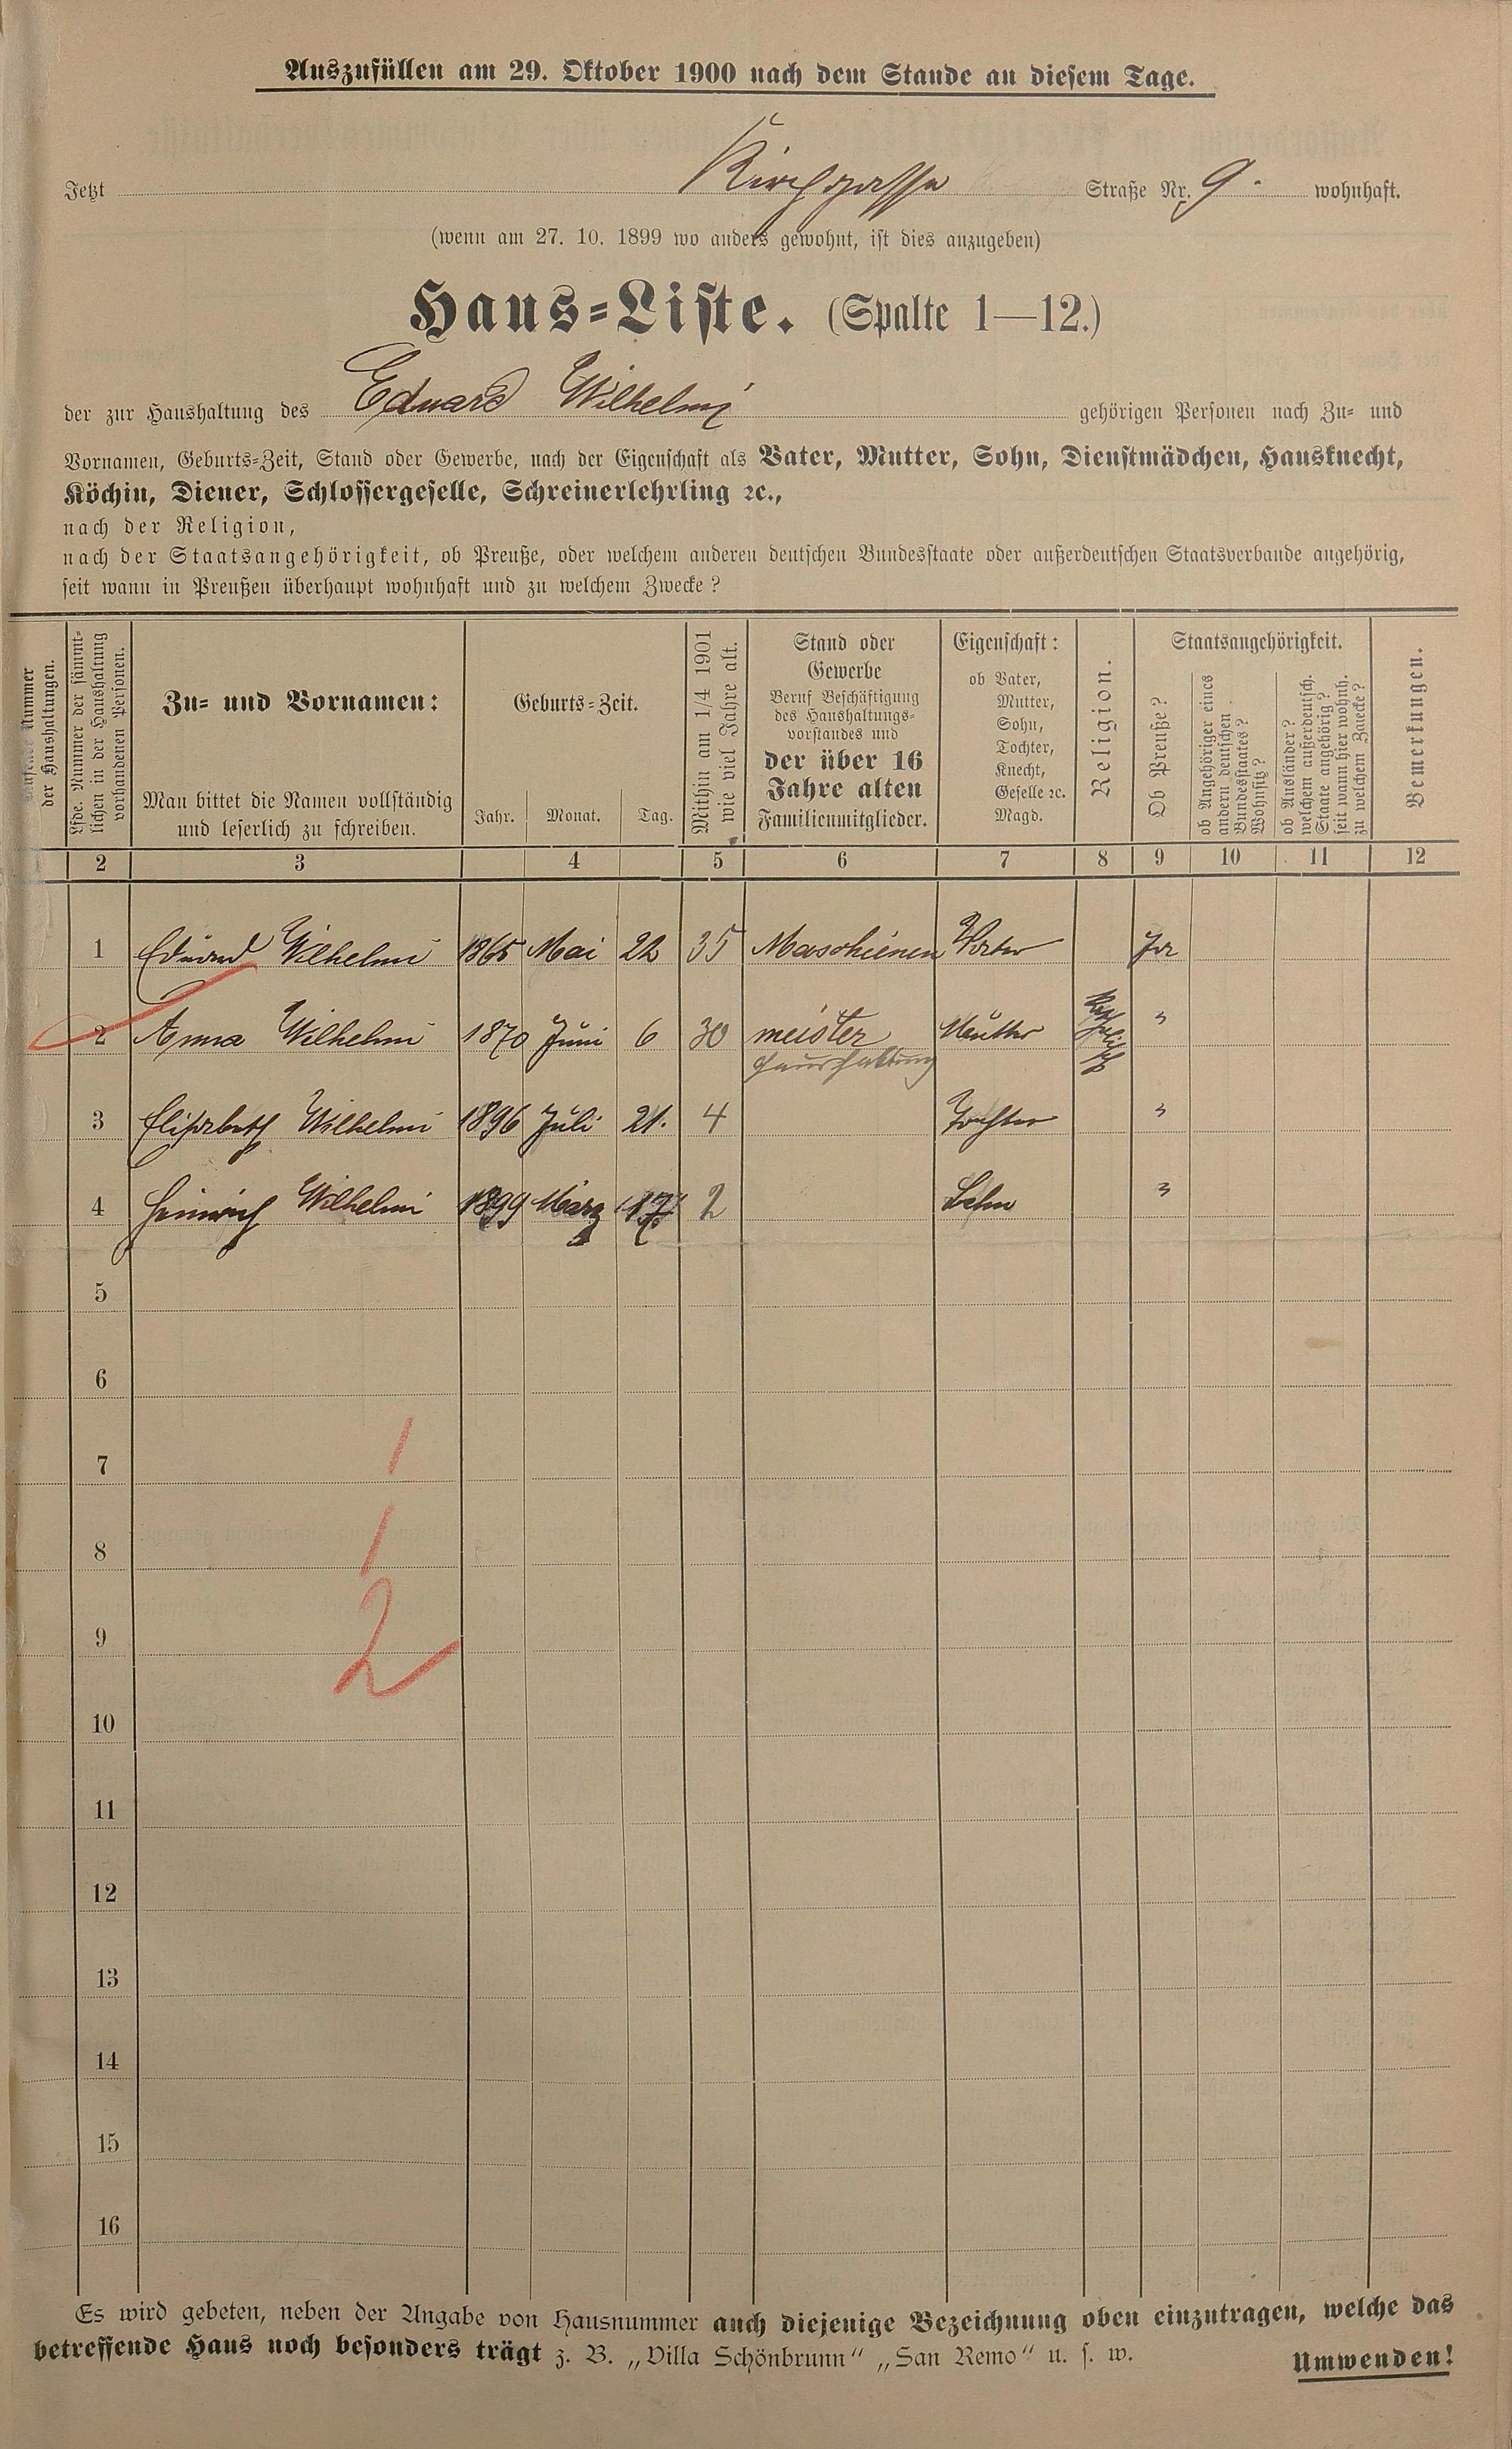 Auszufüllen am 29. Oktober 1900 nach dem Stande an diesem Tage.
Jetzt Kirchgasse Straße Nr. 9. wohnhaft.
(wenn am 27. 10. 1899 wo anders gewohnt, ist dies anzugeben)
Haus-Liste. (Spalte 1—12.)
der zur Haushaltung des Eduard Wilhelmi gehörigen Personen nach Zu- und
Vornamen, Geburts-Zeit, Stand oder Gewerbe, nach der Eigenschaft als Vater, Mutter, Sohn, Dienstmädchen, Hausknecht,
Köchin, Diener, Schlossergeselle, Schreinerlehrling ꝛc.,
nach der Religion,
nach der Staatsangehörigkeit, ob Preuße, oder welchem anderen deutschen Bundesstaate oder außerdeutschen Staatsverbande angehörig,
seit wann in Preußen überhaupt wohnhaft und zu welchem Zwecke?
Nummer
der Haushaltungen.
Lfde. Nummer der sämmt-
lichen in der Haushaltung
vorhandenen Personen.
Zu- und Vornamen:
Man bittet die Namen vollständig
und leserlich zu schreiben.
Geburts-Zeit.
Jahr. Monat. Tag.
Mithin am 1/4 1901
wie viel Jahre alt.
Stand oder
Gewerbe
Beruf Beschäftigung
des Haushaltungs-
vorstandes und
der über 16
Jahre alten
Familienmitglieder.
Eigenschaft:
ob Vater,
Mutter,
Sohn,
Tochter,
Knecht,
Geselle ꝛc.
Magd.
Religion.
Staatsangehörigkeit.
Ob Preuße?
ob Angehöriger eines
andern deutschen
Bundesstaates?
Wohnsitz?
ob Ausländer?
welchem außerdeutsch.
Staate angehörig?
seit wann hier wohnh.
zu welchem Zwecke?
Bemerkungen.
2 3 4 5 6 7 8 9 10 11 12
1 Eduard Wilhelmi 1865 Mai 22 35 Maschienen Vater Ja
2 Anna Wilhelmi 1870 Juni 6 30 meister Mutter "
Haushaltung
3 Elisabeth Wilhelmi 1896 Juli 21. 4 Tochter "
4 Heinrich Wilhelmi 1899 März 17 2 Sohn "
5
6
7
1
8
1
9
2
10
11
12
13
14
15
16
Es wird gebeten, neben der Angabe von Hausnummer auch diejenige Bezeichnung oben einzutragen, welche das
betreffende Haus noch besonders trägt z. B. „Villa Schönbrunn“ „San Remo“ u. s. w.
Umwenden!